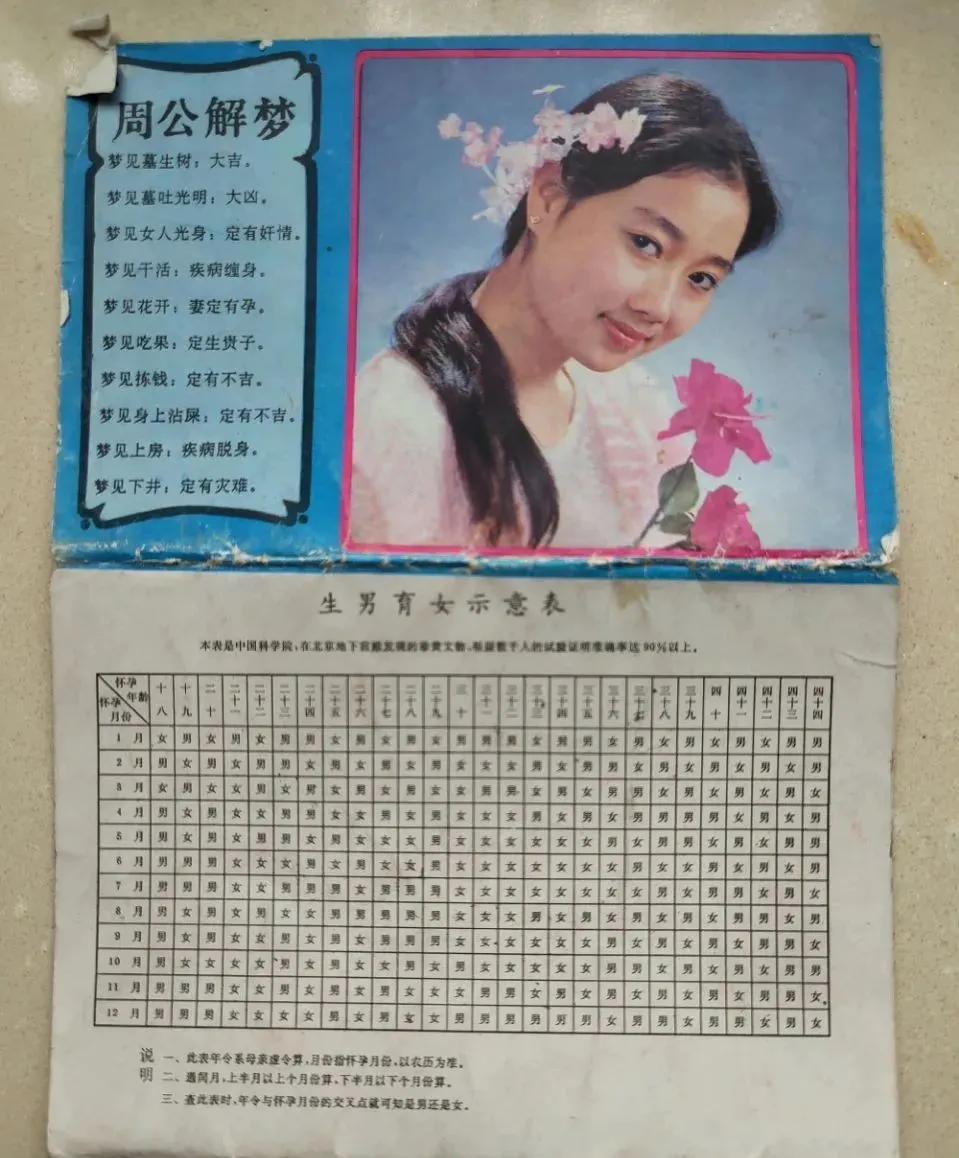 周公解梦
梦见墓生树：大吉。
梦见墓吐光明：大凶。
梦见女人光身：定有奸情。
梦见干活：疾病缠身。
梦见花开：妻定有孕。
梦见吃果：定生贵子。
梦见拣钱：定有不吉。
梦见身上沾屎：定有不吉。
梦见上房：疾病脱身。
梦见下井：定有灾难。
生男育女示意表
本表是中国科学院，在北京地下宫殿发现的珍贵文物，根据数千人的试验证明准确率达90%以上。
怀孕年龄 怀孕月份 十八 十九 二十 二十一 二十二 二十三 二十四 二十五 二十六 二十七 二十八 二十九 三十 三十一 三十二 三十三 三十四 三十五 三十六 三十七 三十八 三十九 四十 四十一 四十二 四十三 四十四
1 月 女 男 女 男 女 男 男 女 男 女 男 女 男 男 男 女 男 男 女 男 女 男 女 男 女 男 男
2 月 男 女 男 女 男 男 男 女 男 女 男 男 女 女 女 男 女 男 男 女 男 女 男 女 男 女 男
3 月 女 男 女 女 男 女 男 女 男 女 男 女 男 女 女 女 男 女 男 男 女 男 女 男 女 男 女
4 月 男 女 男 女 女 男 男 女 女 男 女 女 女 女 女 男 女 男
5 月 男 女 男 女 男 男 女 男 女 女 女 男 女 女 女 女 女 女 男 女 男 男 女 男 女 男 男
6 月 男 男 男 女 女 女 男 女 男 女 女 男 女 女 女 女 女 女
7 月 男 男 男 女 女 男 男 男 女 男 男 男 女 女 女 女 女 女
8 月 男 女 男 女 男 女 女 男 男 男 男 男 女 女 女 男 女 男 女 男 女 男 女 男 女 女 男
9 月 男 女 男 女 女 男 女 男 女 男 男 男 女 女 女 女 女 女 男 女 男 女 男 女 男 男 女
10 月 男 女 女 女 女 男 女 男 女 男 女 女 男
11 月 男 男 男 女 女 男 女 男 女 男 女 女 女 男 男 女
12 月 男 男 男 女 女 女 女 男 女 男 女 女 男 男 男 男 男 男
说明
一、此表年令系母亲虚令算，月份指怀孕月份，以农历为准。
二、遇闰月，上半月以上个月份算，下半月以下个月份算。
三、查此表时，年令与怀孕月份的交叉点就可知是男还是女。